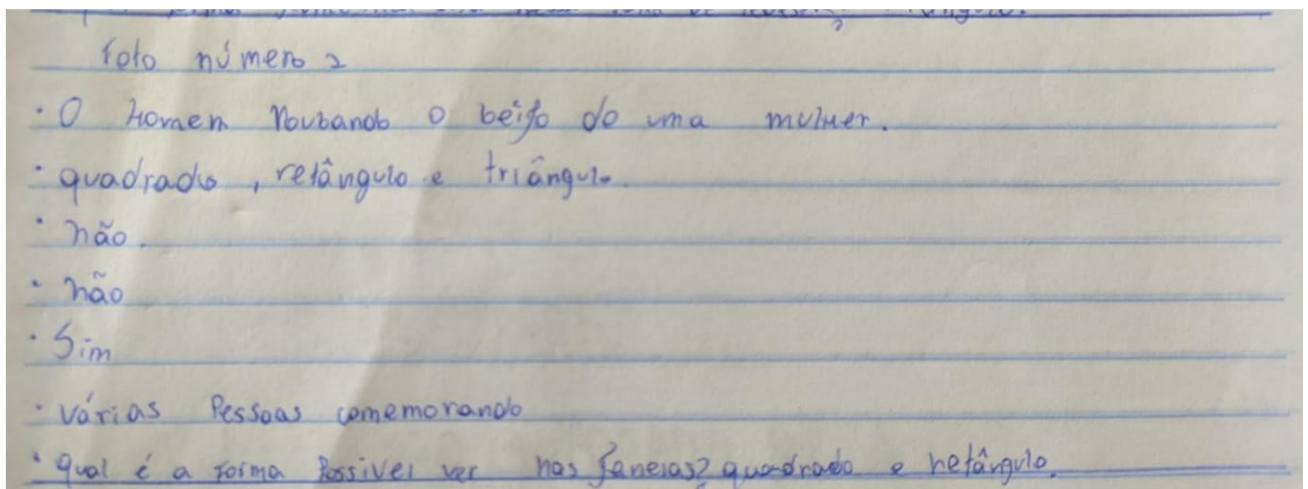 foto número 2
· O Homem Roubando o beijo do uma mulher.
· quadrado, retângulo e triângulo.
· não.
· não
· Sim
· Várias Pessoas comemorando
· qual é a forma Possivel ver nas Janelas? quadrado e retângulo.